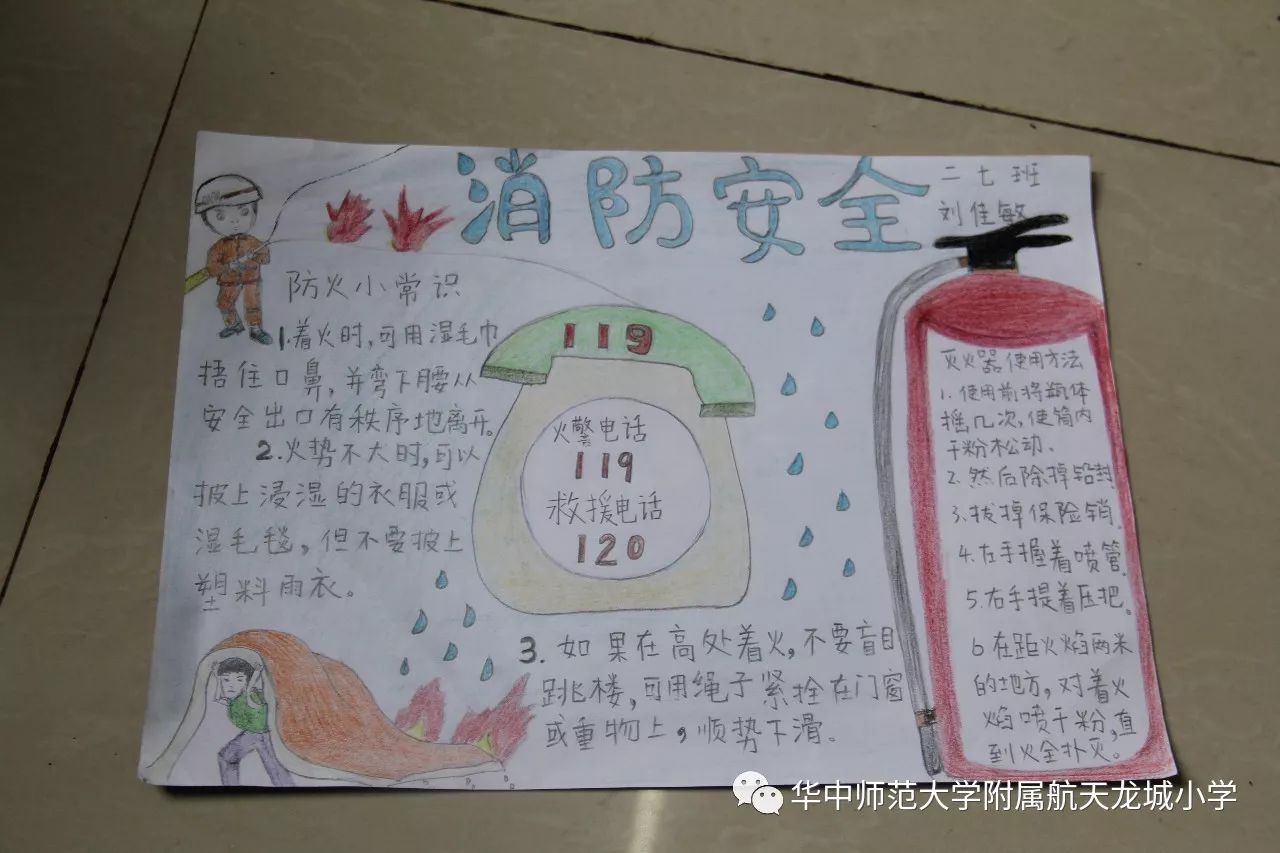 消防安全
二七班
刘佳敏
防火小常识
1.着火时,可用湿毛巾
捂住口鼻,并弯下腰从
安全出口有秩序地离开。
2.火势不大时,可以
披上浸湿的衣服或
湿毛毯,但不要披上
塑料雨衣。
119
火警电话
119
救援电话
120
3.如果在高处着火,不要盲目
跳楼,可用绳子紧拴在门窗
或重物上,顺势下滑。
灭火器使用方法
1.使用前将瓶体
摇几次,使筒内
干粉松动.
2.然后除掉铅封
3.拔掉保险销.
4.左手握着喷管.
5.右手提着压把。
6在距火焰两米
的地方,对着火
焰喷干粉,直
到火全扑灭。
华中师范大学附属航天龙城小学